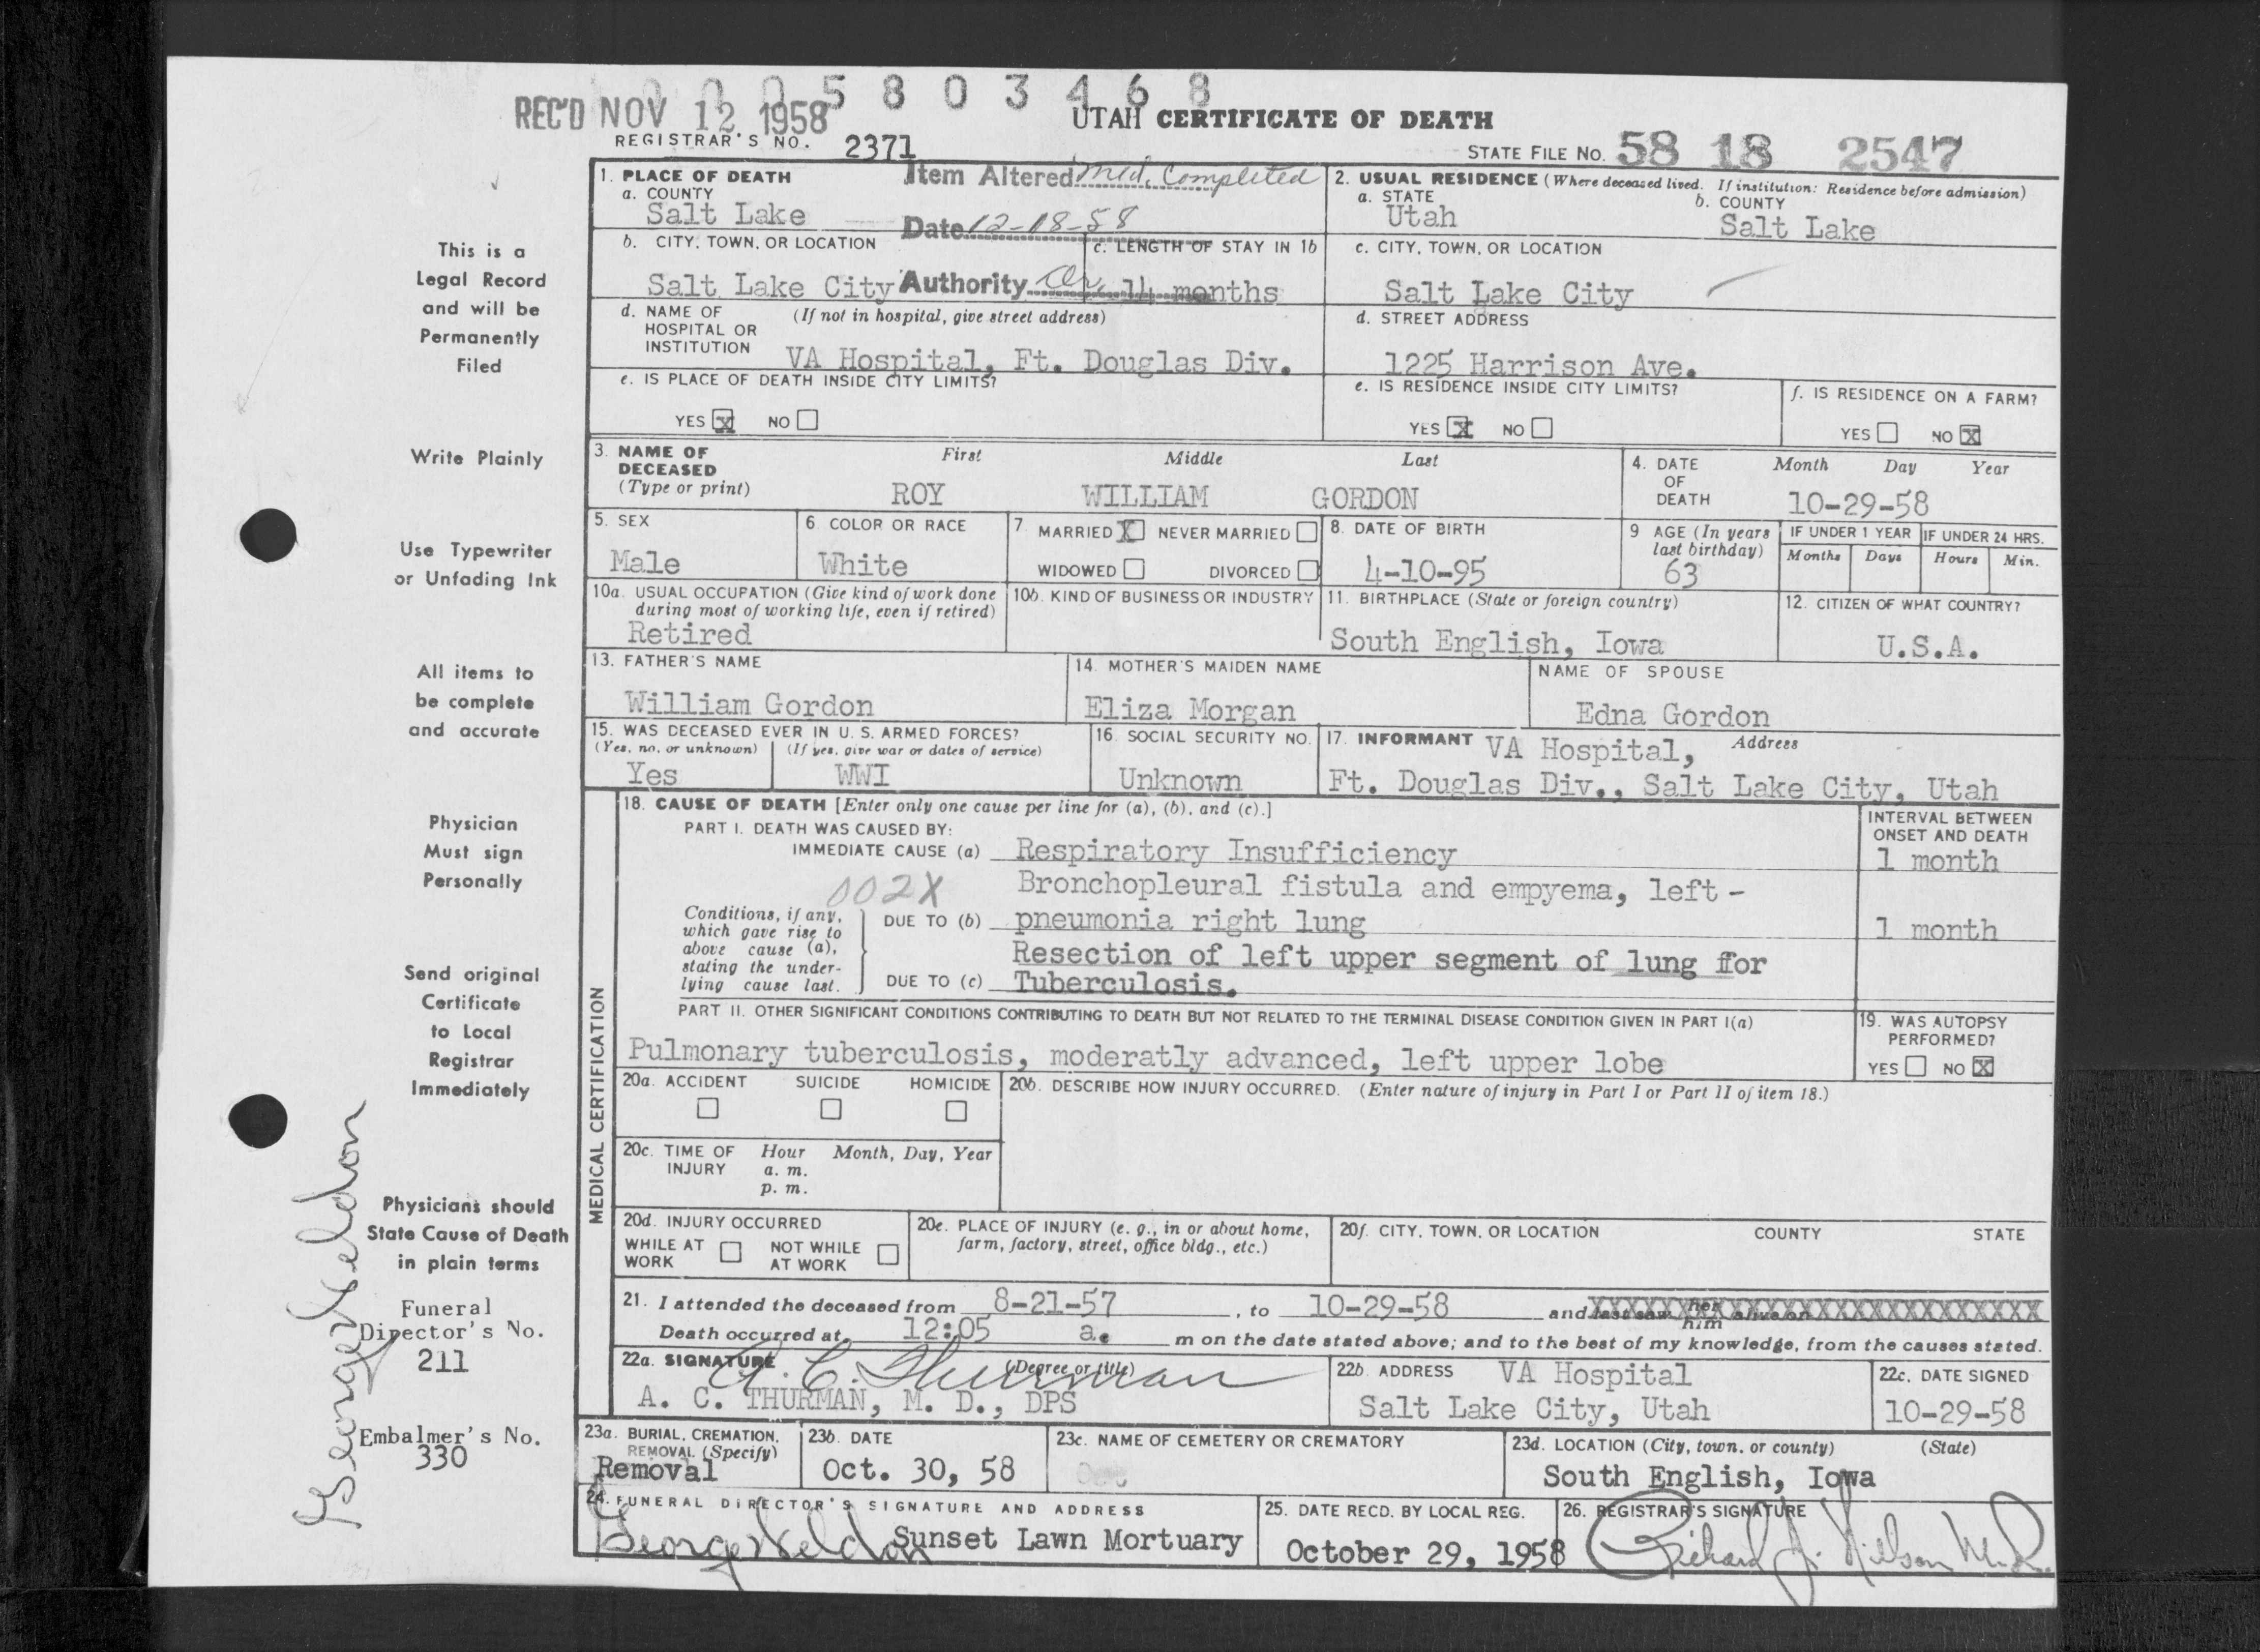 0005803468
REC'D NOV 12 1958
UTAH CERTIFICATE OF DEATH
REGISTRAR'S NO. 2371
STATE FILE NO. 58 18 2547
1. PLACE OF DEATH
a. COUNTY
Salt Lake
Item Altered Med. Completed
Date 12-18-58
Authority Dr.
2. USUAL RESIDENCE (Where deceased lived. If institution: Residence before admission)
a. STATE
Utah
b. COUNTY
Salt Lake
b. CITY, TOWN, OR LOCATION
Salt Lake City
c. LENGTH OF STAY IN 1b
14 months
c. CITY, TOWN, OR LOCATION
Salt Lake City
d. NAME OF HOSPITAL OR INSTITUTION
(If not in hospital, give street address)
VA Hospital, Ft. Douglas Div.
d. STREET ADDRESS
1225 Harrison Ave.
e. IS PLACE OF DEATH INSIDE CITY LIMITS?
YES X NO
e. IS RESIDENCE INSIDE CITY LIMITS?
YES X NO
f. IS RESIDENCE ON A FARM?
YES NO X
3. NAME OF DECEASED
(Type or print)
First Middle Last
ROY WILLIAM GORDON
4. DATE OF DEATH
Month Day Year
10-29-58
5. SEX
Male
6. COLOR OR RACE
White
7. MARRIED X NEVER MARRIED
WIDOWED DIVORCED
8. DATE OF BIRTH
4-10-95
9 AGE (In years last birthday)
63
IF UNDER 1 YEAR
Months Days
IF UNDER 24 HRS.
Hours Min.
10a. USUAL OCCUPATION (Give kind of work done during most of working life, even if retired)
Retired
10b. KIND OF BUSINESS OR INDUSTRY
11. BIRTHPLACE (State or foreign country)
South English, Iowa
12. CITIZEN OF WHAT COUNTRY?
U.S.A.
13. FATHER'S NAME
William Gordon
14. MOTHER'S MAIDEN NAME
Eliza Morgan
NAME OF SPOUSE
Edna Gordon
15. WAS DECEASED EVER IN U. S. ARMED FORCES?
(Yes, no, or unknown) (If yes, give war or dates of service)
Yes WWI
16. SOCIAL SECURITY NO.
Unknown
17. INFORMANT VA Hospital, Address
Ft. Douglas Div., Salt Lake City, Utah
MEDICAL CERTIFICATION
18. CAUSE OF DEATH [Enter only one cause per line for (a), (b), and (c).]
PART I. DEATH WAS CAUSED BY:
IMMEDIATE CAUSE (a) Respiratory Insufficiency
INTERVAL BETWEEN ONSET AND DEATH
1 month
002X
Conditions, if any, which gave rise to above cause (a), stating the underlying cause last.
Bronchopleural fistula and empyema, left -
DUE TO (b) pneumonia right lung
1 month
Resection of left upper segment of lung ffor
DUE TO (c) Tuberculosis.
PART II. OTHER SIGNIFICANT CONDITIONS CONTRIBUTING TO DEATH BUT NOT RELATED TO THE TERMINAL DISEASE CONDITION GIVEN IN PART I(a)
Pulmonary tuberculosis, moderatly advanced, left upper lobe
19. WAS AUTOPSY PERFORMED?
YES NO X
20a. ACCIDENT SUICIDE HOMICIDE
20b. DESCRIBE HOW INJURY OCCURRED. (Enter nature of injury in Part I or Part II of item 18.)
20c. TIME OF INJURY
Hour Month, Day, Year
a. m.
p. m.
20d. INJURY OCCURRED
WHILE AT WORK NOT WHILE AT WORK
20e. PLACE OF INJURY (e. g., in or about home, farm, factory, street, office bldg., etc.)
20f. CITY, TOWN, OR LOCATION COUNTY STATE
21. I attended the deceased from 8-21-57, to 10-29-58 and last saw her him alive on XXXXXXXXXXXXXXXXXXXX
Death occurred at 12:05 a. m on the date stated above; and to the best of my knowledge, from the causes stated.
22a. SIGNATURE (Degree or title)
A. C. Thurman
A. C. THURMAN, M. D., DPS
22b. ADDRESS VA Hospital
Salt Lake City, Utah
22c. DATE SIGNED
10-29-58
23a. BURIAL, CREMATION, REMOVAL (Specify)
Removal
23b. DATE
Oct. 30, 58
23c. NAME OF CEMETERY OR CREMATORY
23d. LOCATION (City, town, or county) (State)
South English, Iowa
24. FUNERAL DIRECTOR'S SIGNATURE AND ADDRESS
George Weldon Sunset Lawn Mortuary
25. DATE RECD. BY LOCAL REG.
October 29, 1958
26. REGISTRAR'S SIGNATURE
Richard J. Nilson M.D.
This is a
Legal Record
and will be
Permanently
Filed
Write Plainly
Use Typewriter
or Unfading Ink
All items to
be complete
and accurate
Physician
Must sign
Personally
Send original
Certificate
to Local
Registrar
Immediately
Physicians should
State Cause of Death
in plain terms
Funeral
Director's No.
211
Embalmer's No.
330
George Weldon